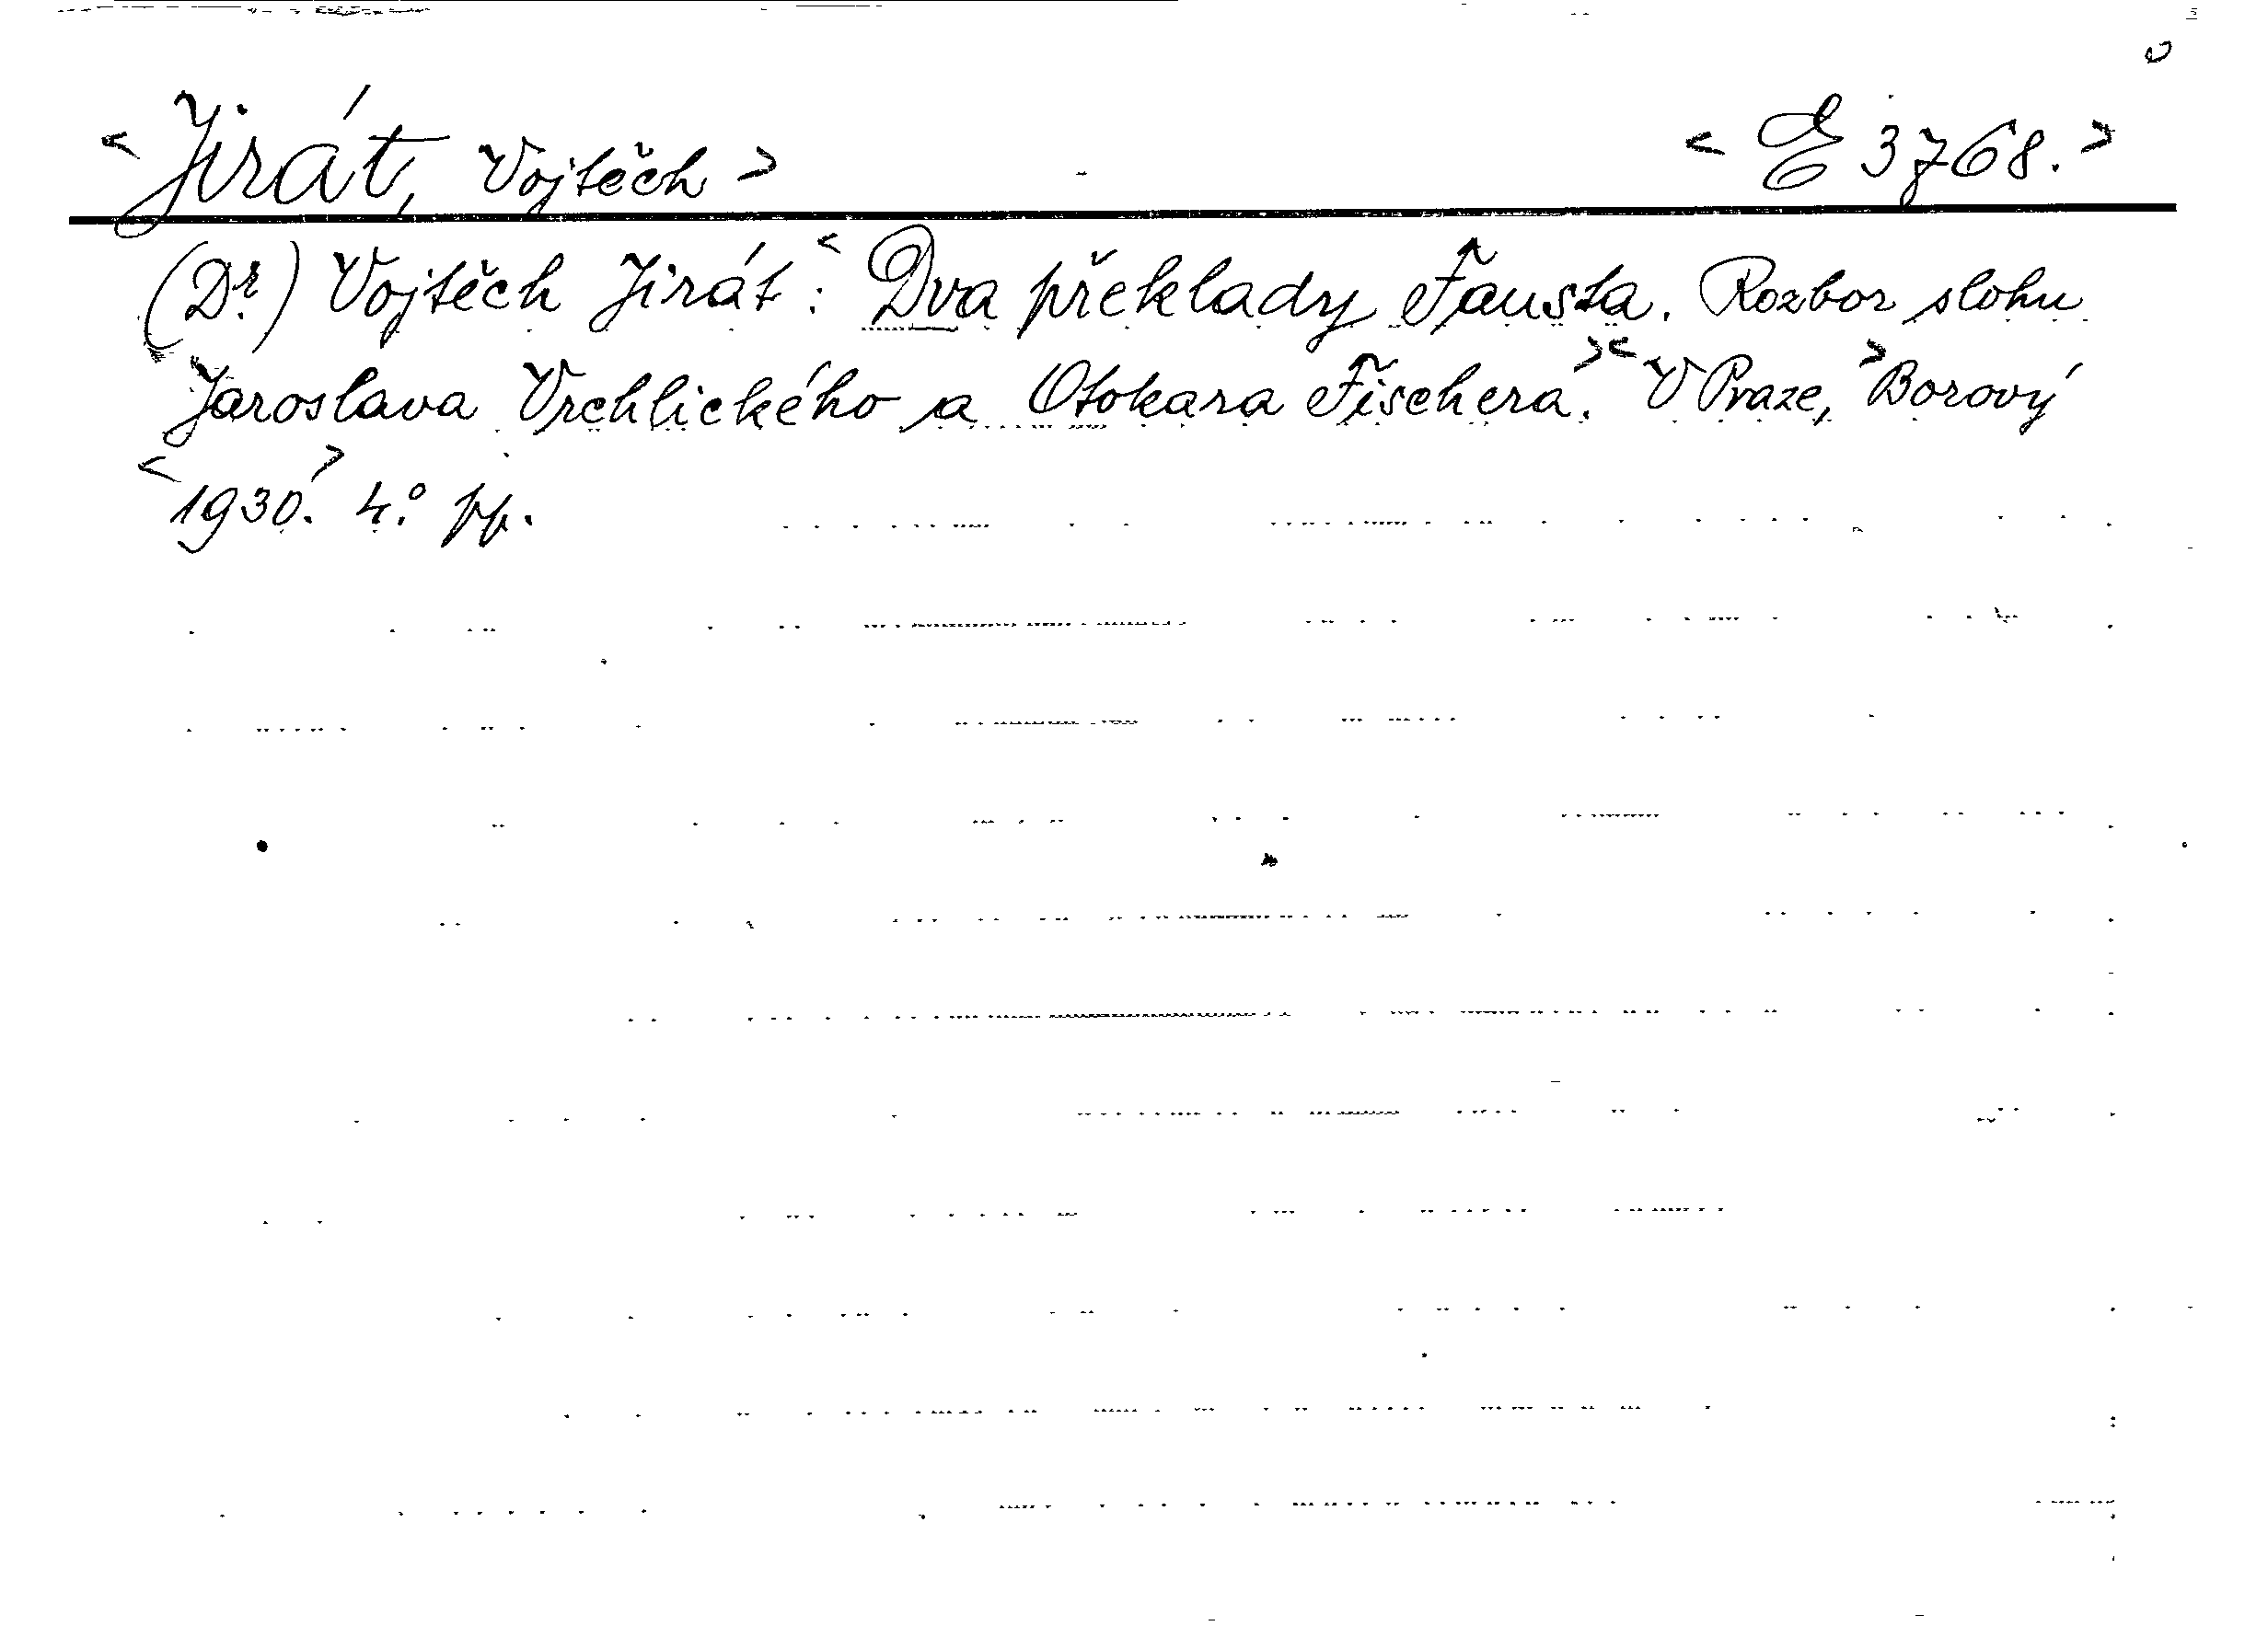 <Jirát, Vojtěch> <E 3768.>
(Dr.) Vojtěch Jirát: <Dva překlady Fausta. Rozbor slohu
Jaroslava Vrchlického a Otokara Fischera.> <V Praze,> Borový
<1930.> 4.° pp.